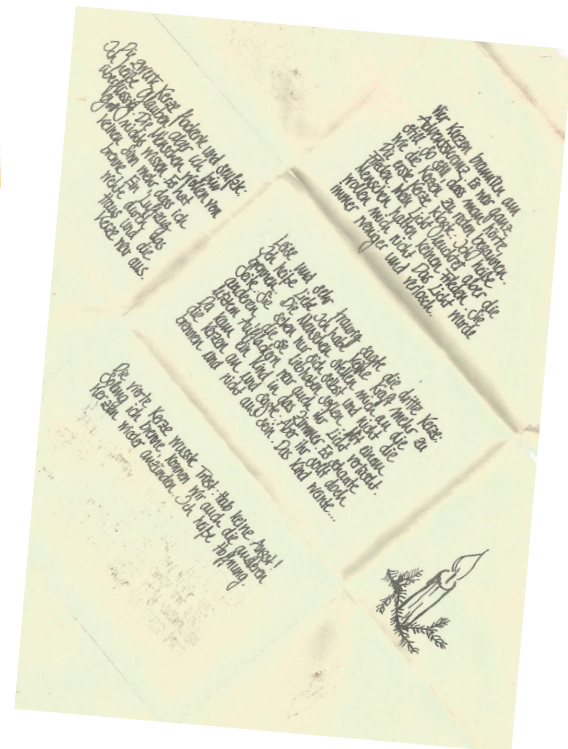 Vier Kerzen brannten am
Adventskranz. Es war ganz
still. So still, dass man hörte,
wie die Kerzen zu reden begannen.
Die erste Kerze klagte: Ich heiße
Frieden. Mein Licht flackert aber die
Menschen halten keinen Frieden. Sie
wollen mich nicht. Das Licht wurde
immer weniger und verlosch.
Die zweite Kerze flackerte und seufzte:
Ich heiße Glauben aber ich bin
überflüssig. Die Menschen wollen von
Gott nichts wissen. Es hat
keinen Sinn mehr, dass ich
brenne. Ein Luftzug
wehte durch das
Haus und die
Kerze war aus.
Leise und sehr traurig sagte die dritte Kerze:
Ich heiße Liebe. Ich habe keine Kraft mehr zu
brennen. Die Menschen stellen mich an die
Seite. Sie sehen nur sich selbst und nicht die
anderen, die sie liebhaben sollen. Mit einem
letzten Aufflackern war auch ihr Licht
Da kam ein Kind in das Zimmer. Es schaute
die Kerzen an und sagte: Aber ihr sollt doch
brennen und nicht aus sein. Das Kind weinte...
Die vierte Kerze wusste Trost: Hab keine Angst!
Solang ich brenne, können wir auch die anderen
Kerzen wieder anzünden. Ich heiße Hoffnung.